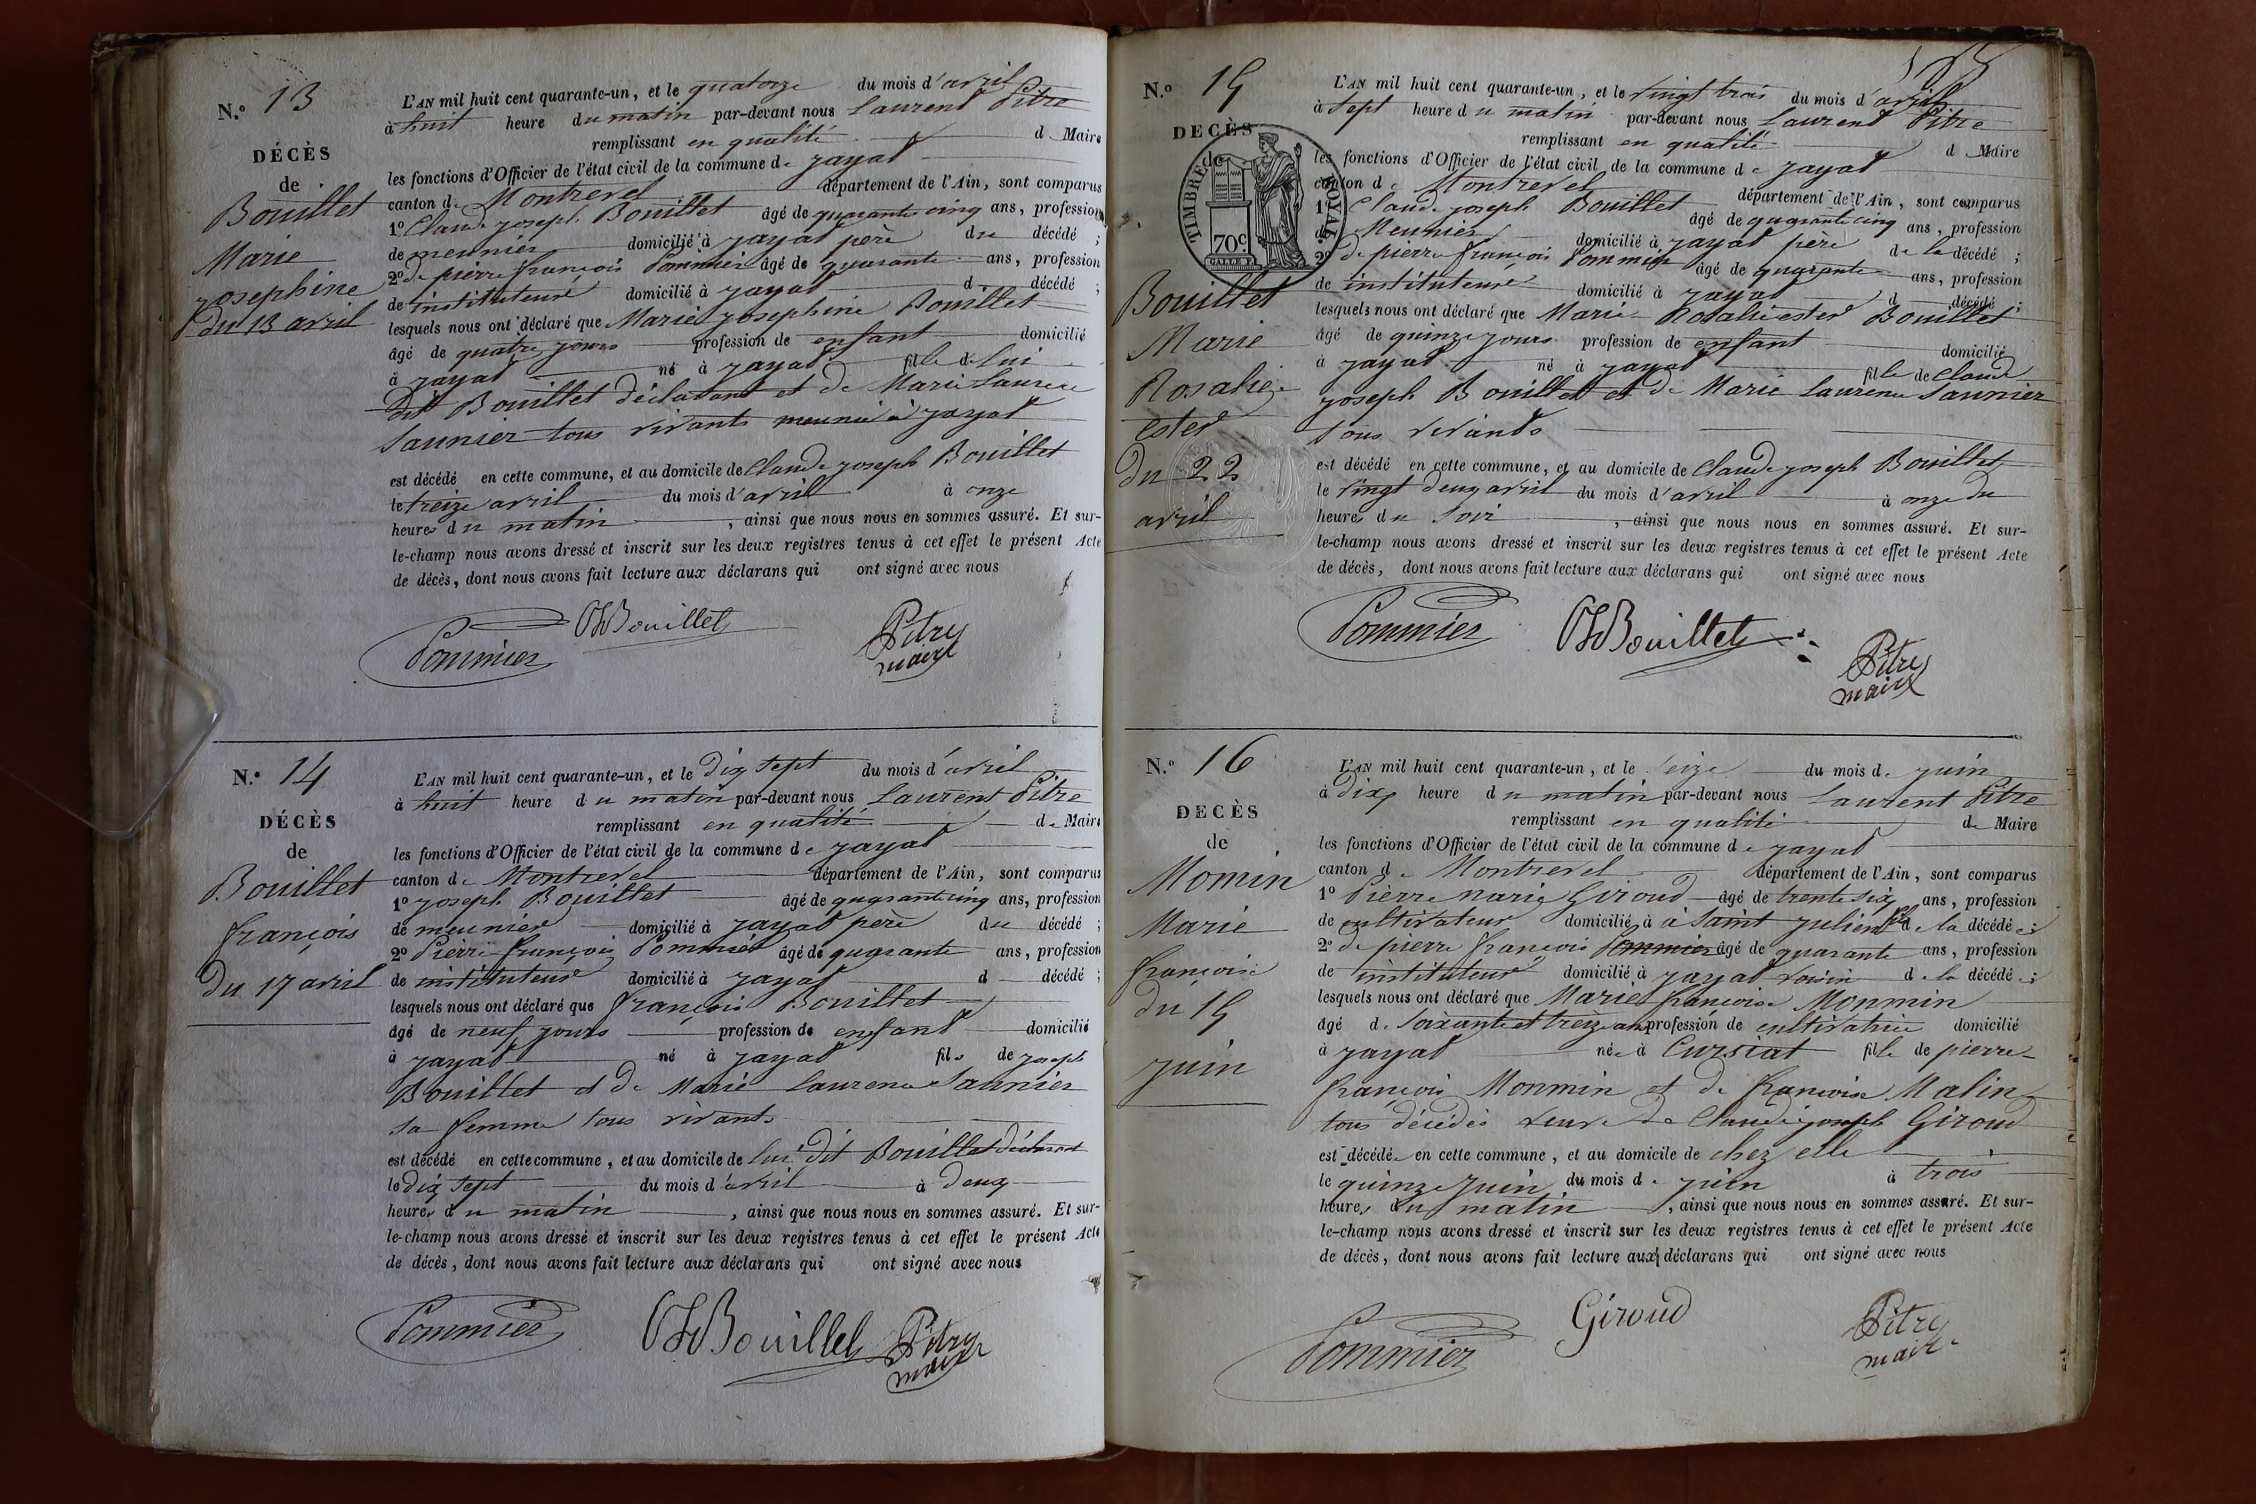 N.º 13
DÉCÈS
de
Bouillet
Marie
josephine
du 13 avril
L'AN mil huit cent quarante-un, et le quatorze du mois d'avril
à huit heure du matin par-devant nous Laurent Pitre
remplissant en qualité de Maire
les fonctions d'Officier de l'état civil de la commune de jayat
canton de Montrevel département de l'Ain, sont comparus
1º Claude joseph Bouillet âgé de quarante cinq ans, profession
de meunier domicilié à jayat père du décédé ;
2º de pierre françois Pommier âgé de quarante ans, profession
de instituteur domicilié à jayat d décédé ;
lesquels nous ont déclaré que Marie josephine Bouillet
âgé de quatre jours profession de enfant domicilié
à jayat né à jayat fille de lui
dit Bouillet déclarant et de Marie Laurence
Saunier tous vivants meunié à jayat
est décédé en cette commune, et au domicile de Claude joseph Bouillet
le treize avril du mois d'avril à onze
heures du matin, ainsi que nous nous en sommes assuré. Et sur-
le-champ nous avons dressé et inscrit sur les deux registres tenus à cet effet le présent Acte
de décès, dont nous avons fait lecture aux déclarans qui ont signé avec nous
Pommier Bouillet Pitre
maire
N.º 14
DÉCÈS
de
Bouillet
françois
du 17 avril
L'AN mil huit cent quarante-un, et le dix sept du mois d'avril
à huit heure du matin par-devant nous Laurent Pitre
remplissant en qualité de Maire
les fonctions d'Officier de l'état civil de la commune de jayat
canton de Montrevel département de l'Ain, sont comparus
1º joseph Bouillet âgé de quarante cinq ans, profession
de meunier domicilié à jayat père du décédé ;
2º Pierre françois Pommier âgé de quarante ans, profession
de instituteur domicilié à jayat d décédé ;
lesquels nous ont déclaré que françois Bouillet
âgé de neuf jours profession de enfant domicilié
à jayat né à jayat fils de joseph
Bouillet et de Marie Laurence Saunier
sa femme tous vivants
est décédé en cette commune, et au domicile de lui dit Bouillet déclarant
le dix sept du mois d'avril à deux
heures du matin, ainsi que nous nous en sommes assuré. Et sur-
le-champ nous avons dressé et inscrit sur les deux registres tenus à cet effet le présent Acte
de décès, dont nous avons fait lecture aux déclarans qui ont signé avec nous
Pommier Bouillet Pitre
maire
N.º 15
DECÈS
de
TIMBRE ROYAL
70c
Bouillet
Marie
Rosalie
ester
du 22
avril
L'AN mil huit cent quarante-un, et le vingt trois du mois d'avril
à sept heure du matin par-devant nous Laurent Pitre
remplissant en qualité d Maire
les fonctions d'Officier de l'état civil de la commune de jayat
canton de Montrevel département de l'Ain, sont comparus
1º Claude joseph Bouillet âgé de quarante cinq ans, profession
de Meunier domicilié à jayat père de la décédé ;
2º de pierre françois Pommier âgé de quarante ans, profession
de instituteur domicilié à jayat d décédé ;
lesquels nous ont déclaré que Marie Rosalie ester Bouillet
âgé de quinze jours profession de enfant domicilié
à jayat né à jayat fille de Claude
joseph Bouillet et de Marie Laurence Saunier
tous vivants
est décédé en cette commune, et au domicile de Claude joseph Bouillet
le vingt deux avril du mois d'avril à onze du
heures du soir, ainsi que nous nous en sommes assuré. Et sur-
le-champ nous avons dressé et inscrit sur les deux registres tenus à cet effet le présent Acte
de décès, dont nous avons fait lecture aux déclarans qui ont signé avec nous
Pommier Bouillet Pitre
maire
N.º 16
DECÈS
de
Momin
Marie
françoise
du 15
juin
L'AN mil huit cent quarante-un, et le seize du mois de juin
à dix heure du matin par-devant nous Laurent Pitre
remplissant en qualité de Maire
les fonctions d'Officier de l'état civil de la commune de jayat
canton de Montrevel département de l'Ain, sont comparus
1º Pierre marie Giroud âgé de trente six ans, profession
de cultivateur domicilié à à saint julien fils de la décédée ;
2º de pierre françois Pommier âgé de quarante ans, profession
de instituteur domicilié à jayat voisin de la décédée ;
lesquels nous ont déclaré que Marie françoise Monmin
âgé de soixante et treize ans profession de cultivatrice domicilié
à jayat née à Cursiat fille de pierre
françois Monmin et de françoise Malin
tous décédés veuve de Claude joseph Giroud
est décédée en cette commune, et au domicile de chez elle
le quinze juin du mois de juin à trois
heures du matin, ainsi que nous nous en sommes assuré. Et sur-
le-champ nous avons dressé et inscrit sur les deux registres tenus à cet effet le présent Acte
de décès, dont nous avons fait lecture aux déclarans qui ont signé avec nous
Pommier Giroud Pitre
maire